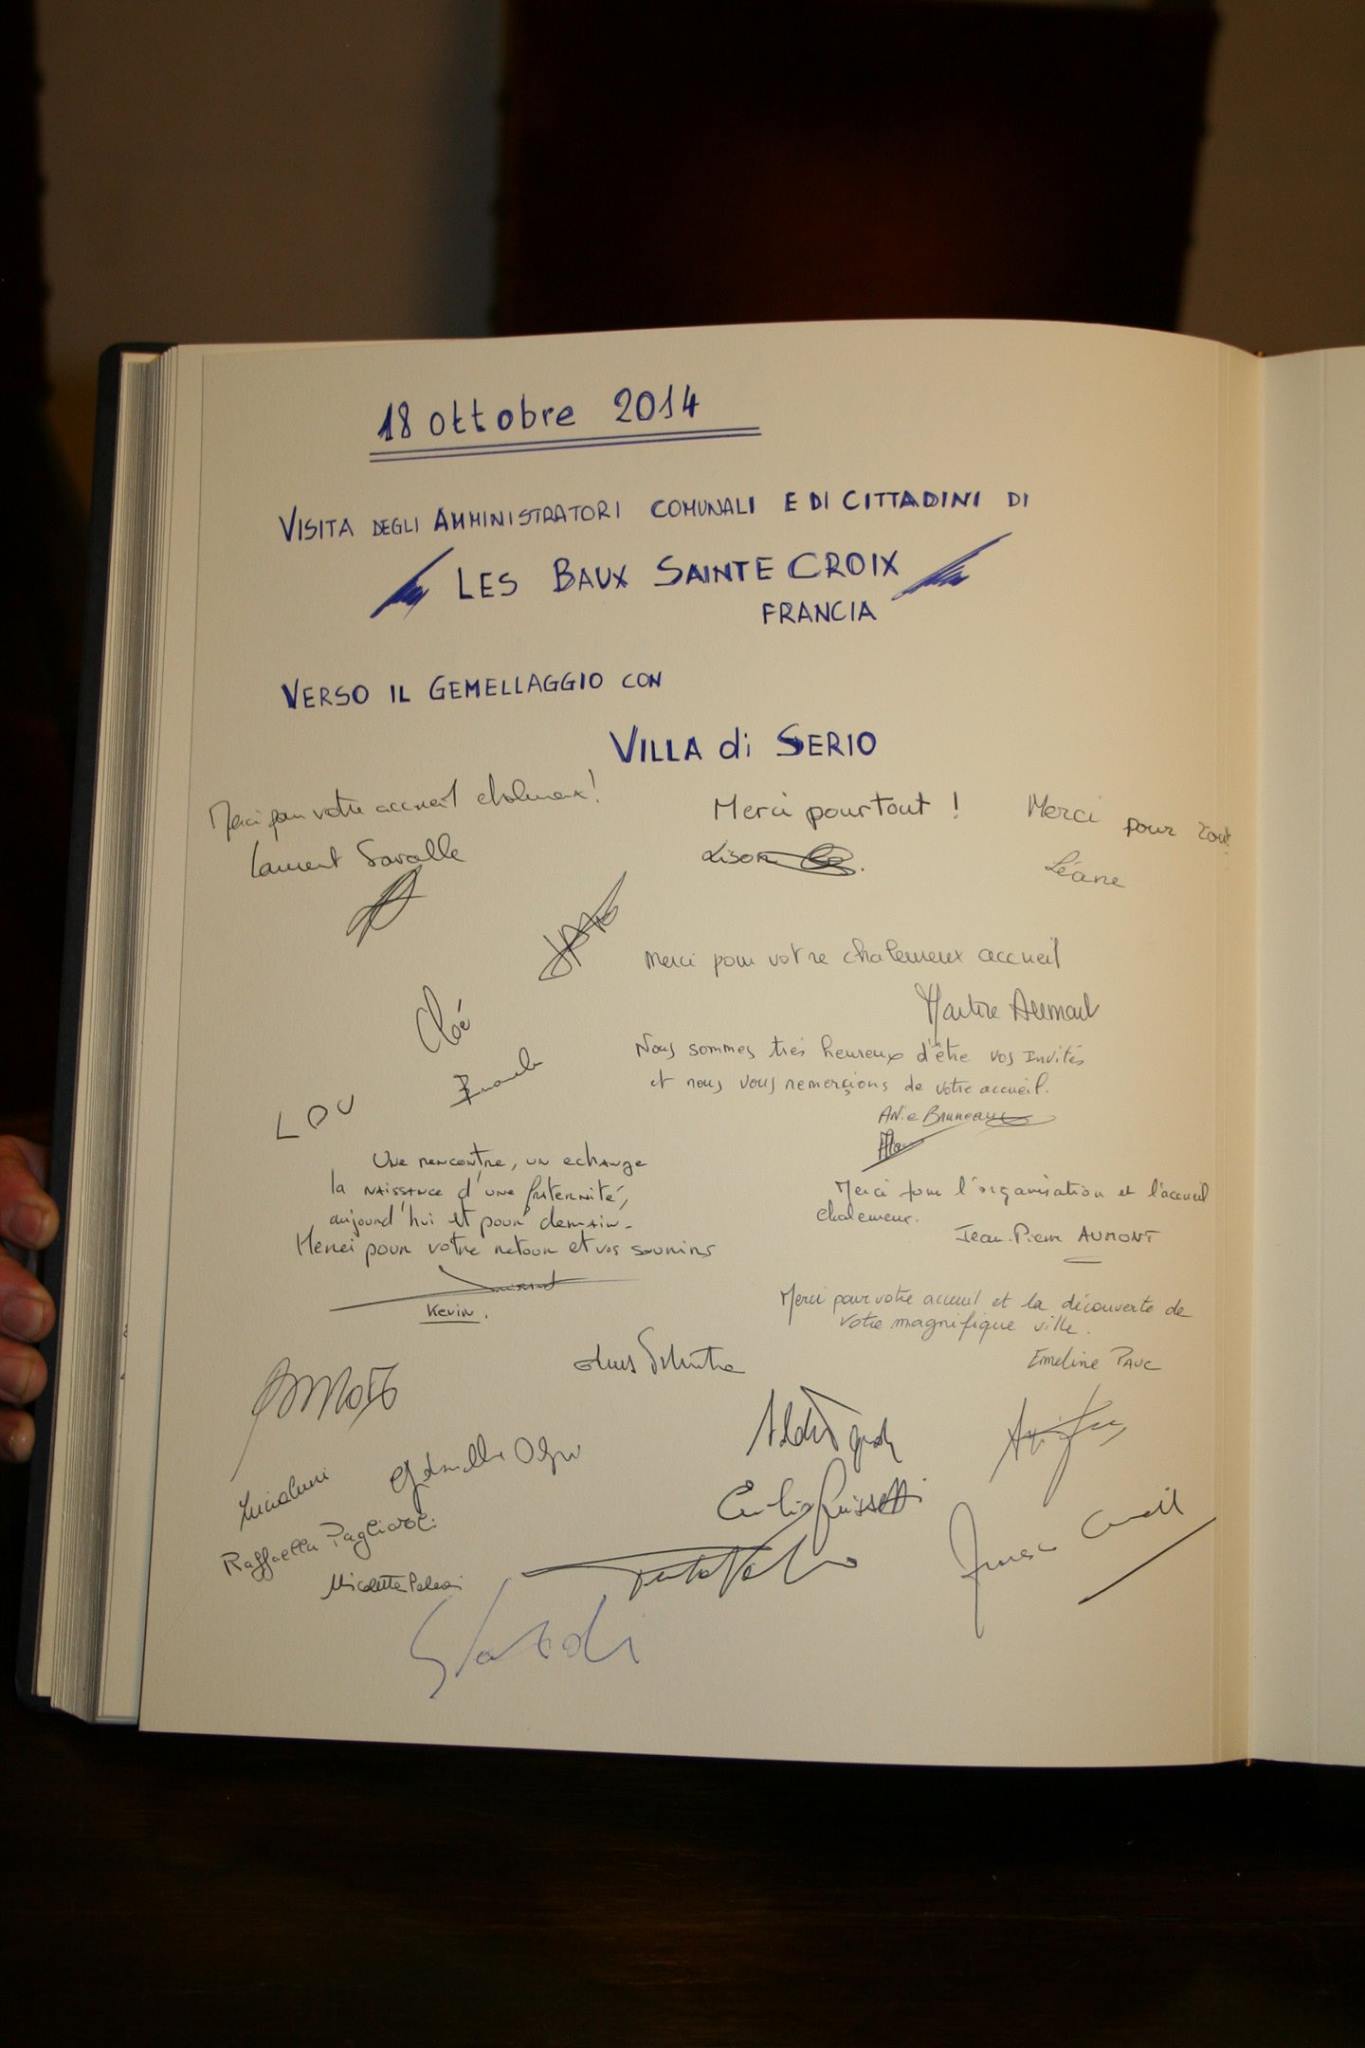 18 ottobre 2014
VISITA DEGLI AMMINISTRATORI COMUNALI E DI CITTADINI DI
LES BAUX SAINTE CROIX
FRANCIA
VERSO IL GEMELLAGGIO CON
VILLA di SERIO
Merci pour votre accueil chaleureux!
Laurent Savalle
Merci pour tout !
Lison
Merci pour tout
Léane
Merci pour votre chaleureux accueil
Martine Aumont
Cloé
LOU
Nous sommes très heureux d'être vos Invités
et nous vous remerçions de votre accueil.
BRUNEAU
Une rencontre, un echange
la naissance d'une fraternité,
aujourd'hui et pour demain-
Merci pour votre retour et vos sourires
Kevin.
Merci pour l'organisation et l'accueil
chaleureux.
Jean-Pierre AUMONT
Merci pour votre accueil et la découverte de
votre magnifique ville.
Emeline PAUC
Raffaella Pagliaroli
Nicoletta